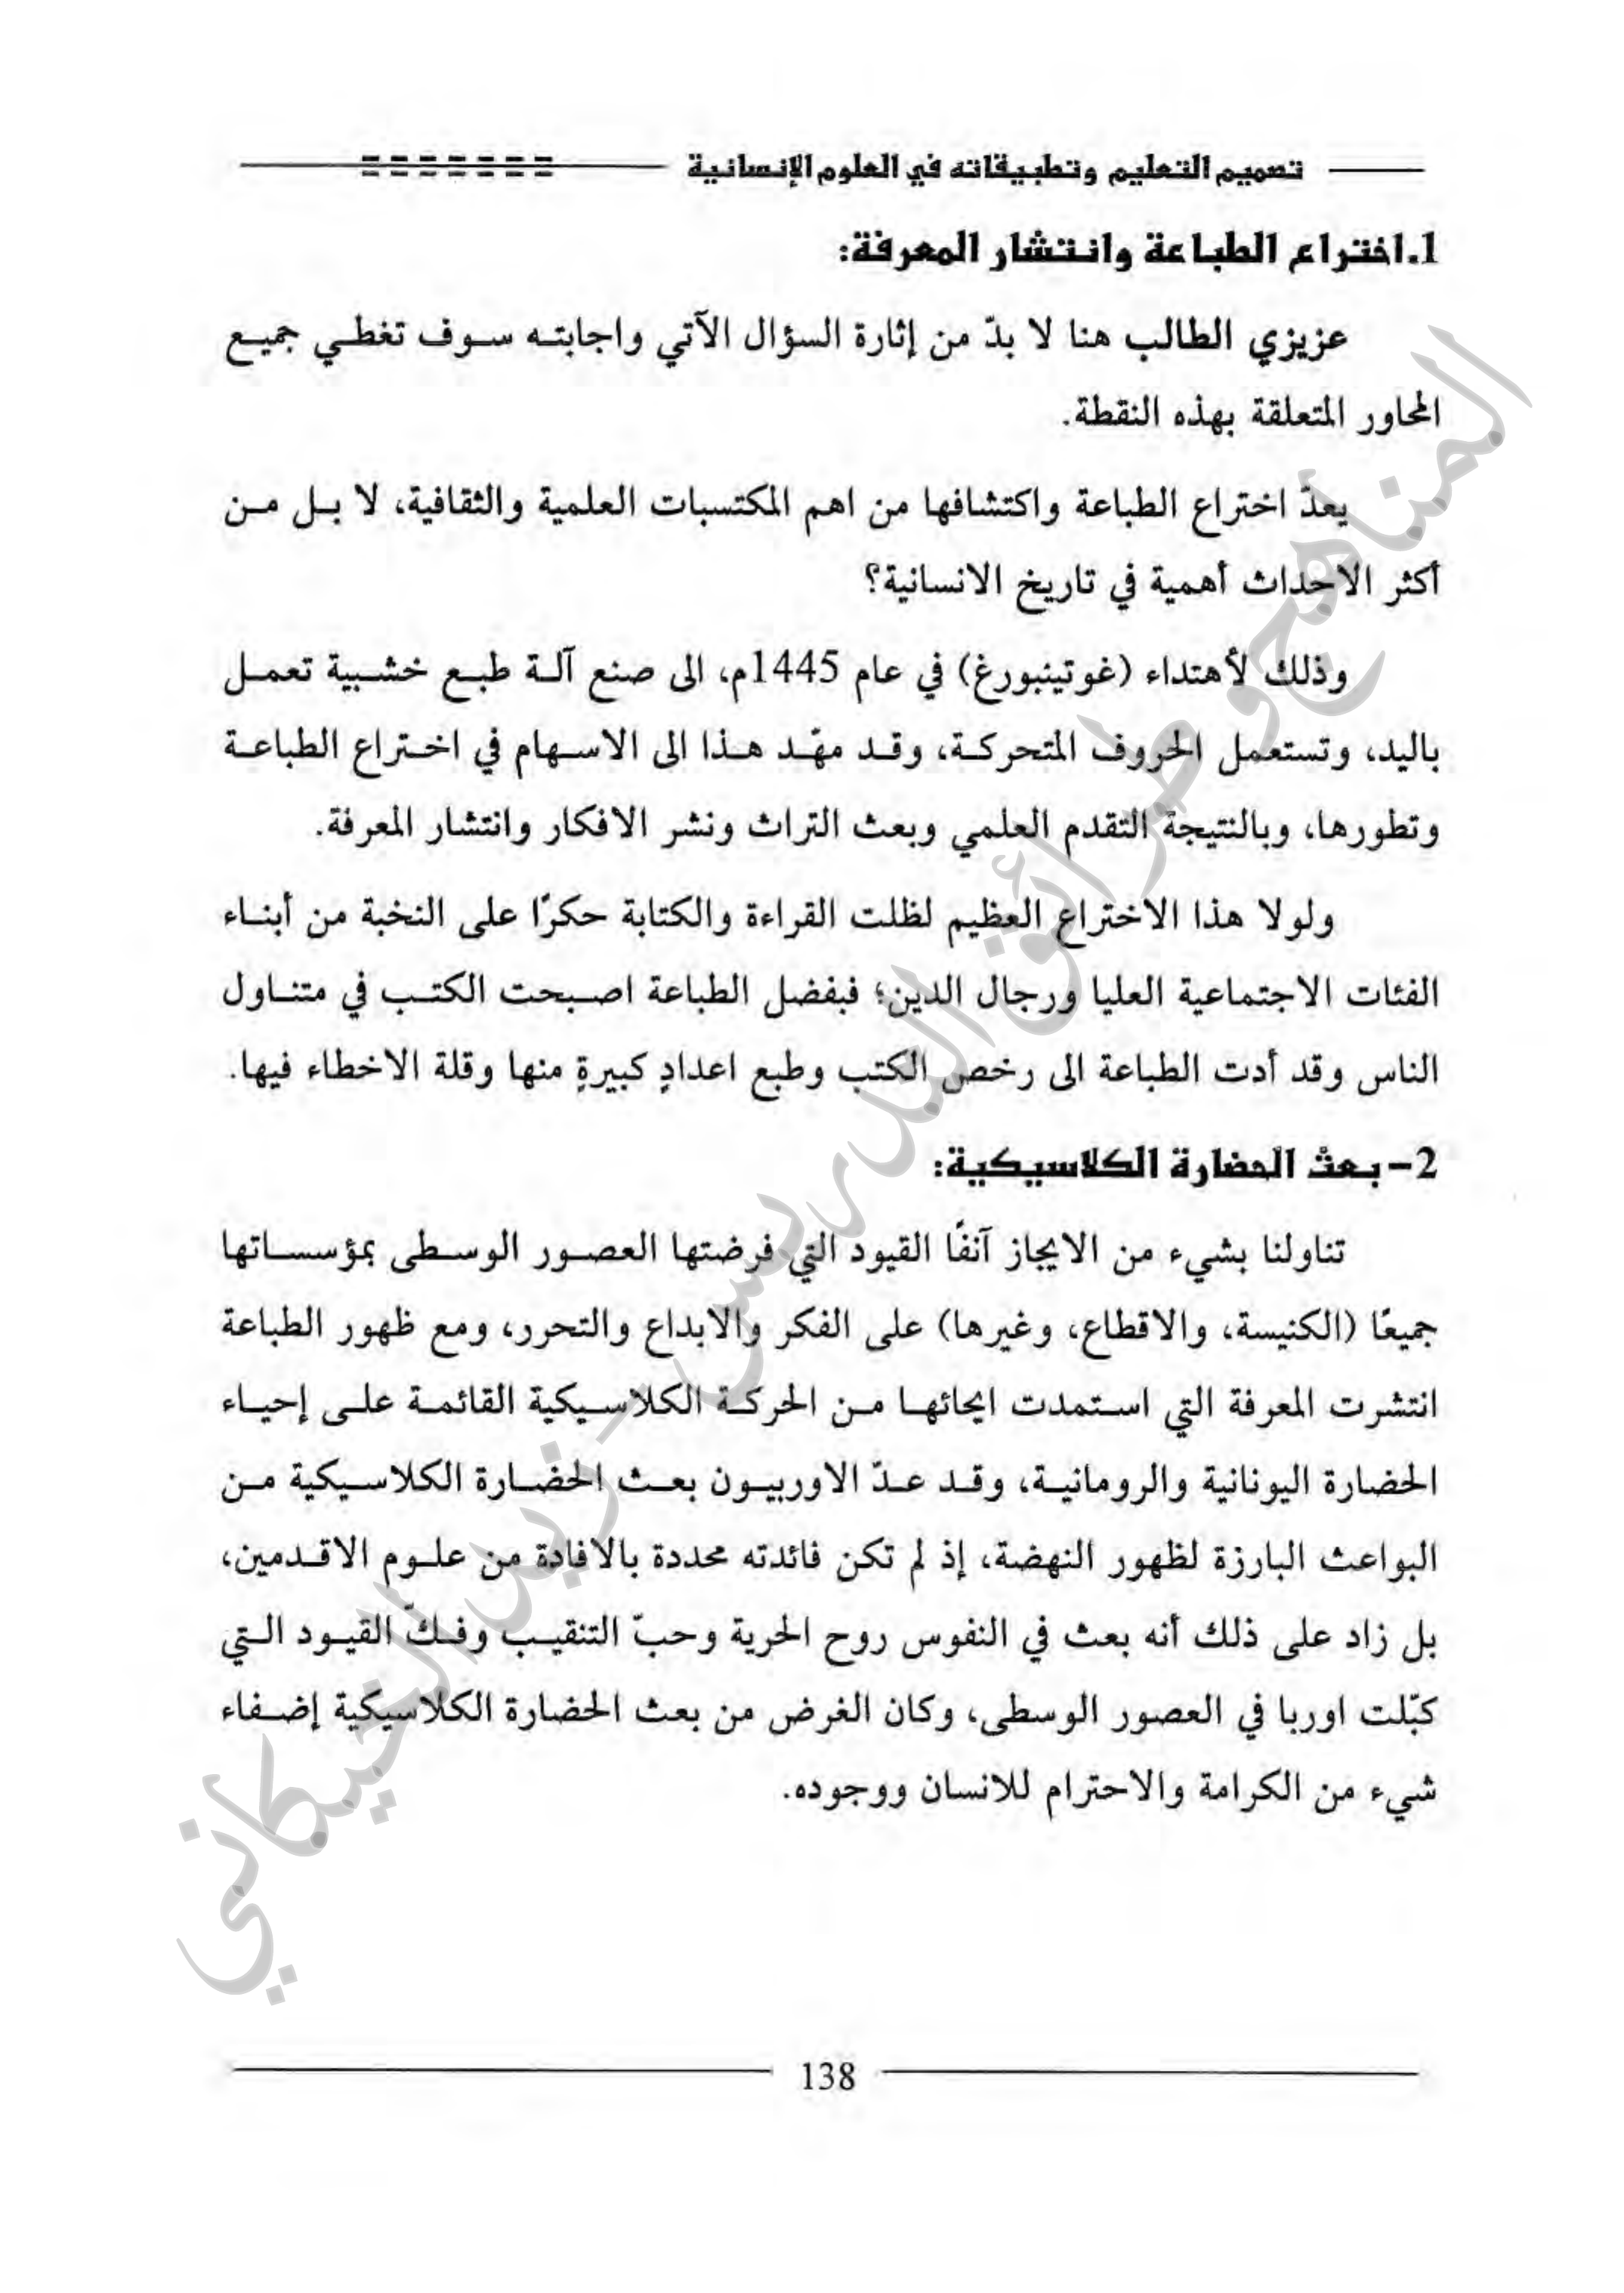 تصميم التعليم وتطبيقاته في العلوم الإنسانية
1.اختراع الطباعة وانتشار المعرفة:
عزيزي الطالب هنا لا بدّ من إثارة السؤال الآتي واجابته سوف تغطي جميع
المحاور المتعلقة بهذه النقطة.
يعدّ اختراع الطباعة واكتشافها من اهم المكتسبات العلمية والثقافية، لا بل من
أكثر الاحداث أهمية في تاريخ الانسانية؟
وذلك لأهتداء (غوتينبورغ) في عام 1445م، الى صنع آلة طبع خشبية تعمل
باليد، وتستعمل الحروف المتحركة، وقد مهّد هذا الى الاسهام في اختراع الطباعة
وتطورها، وبالنتيجة التقدم العلمي وبعث التراث ونشر الافكار وانتشار المعرفة.
ولولا هذا الاختراع العظيم لظلت القراءة والكتابة حكرًا على النخبة من أبناء
الفئات الاجتماعية العليا ورجال الدين؛ فبفضل الطباعة اصبحت الكتب في متناول
الناس وقد أدت الطباعة الى رخص الكتب وطبع اعدادٍ كبيرةٍ منها وقلة الاخطاء فيها.
2- بعث الحضارة الكلاسيكية:
تناولنا بشيء من الايجاز آنفًا القيود التي فرضتها العصور الوسطى بمؤسساتها
جميعًا (الكنيسة، والاقطاع، وغيرها) على الفكر والابداع والتحرر، ومع ظهور الطباعة
انتشرت المعرفة التي استمدت ايحائها من الحركة الكلاسيكية القائمة على إحياء
الحضارة اليونانية والرومانية، وقد عدّ الاوربيون بعث الحضارة الكلاسيكية من
البواعث البارزة لظهور النهضة، إذ لم تكن فائدته محددة بالافادة من علوم الاقدمين،
بل زاد على ذلك أنه بعث في النفوس روح الحرية وحبّ التنقيب وفكّ القيود التي
كبّلت اوربا في العصور الوسطى، وكان الغرض من بعث الحضارة الكلاسيكية إضفاء
شيء من الكرامة والاحترام للانسان ووجوده.
المناهج وطرائق التدريس - زيد الخيكاني
138